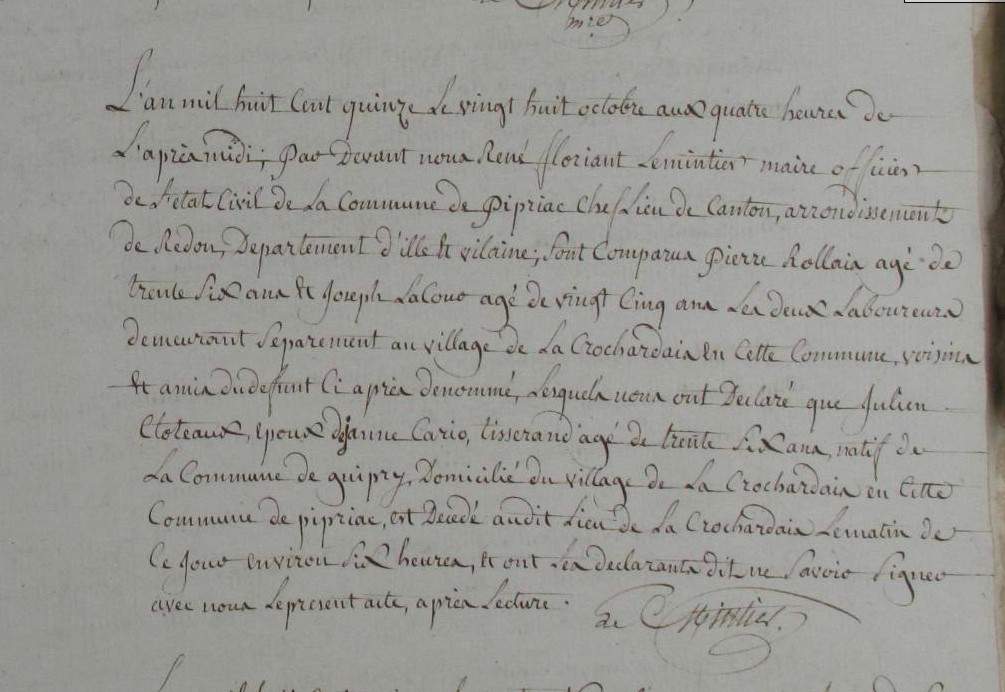 mre
L'an mil huit Cent quinze Le vingt huit octobre aux quatre heures de
L'après midi; Par Devant nous René floriant Lemintier maire officier
de L'etat Civil de La Commune de Pipriac Chef Lieu de Canton, arrondissement
de Redon, Departement d'ille et vilaine; Sont Comparus Pierre Rollais agé de
trente Six ans et Joseph LaCour agé de vingt Cinq ans Les deux Laboureurs
demeurant Separement au village de La Crochardais en Cette Commune, voisins
et amis du defunt Ci après denommé, Lesquels nous ont Declaré que Julien
Etoteaux, epoux de janne Cario, tisserand agé de trente Six ans, natif de
La Commune de guipry, Domicilié du village de La Crochardais en Cette
Commune de pipriac, est Decedé audit Lieu de La Crochardais Le matin de
Ce Jour environ Six heures, et ont Les declarants dit ne Savoir Signer
avec nous Le present acte, après Lecture.
de Mintier